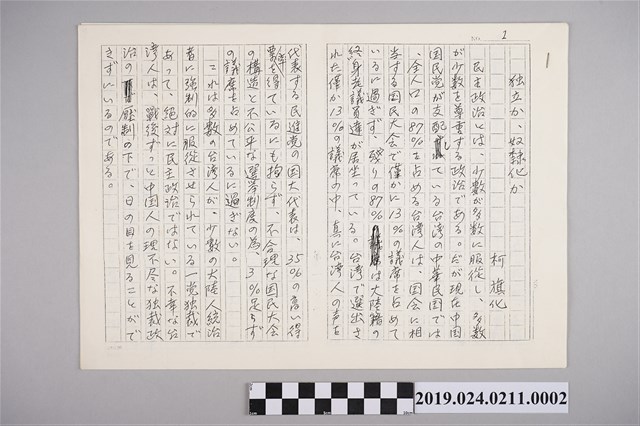 1
独立か、奴隷化か
柯旗化
民主政治とは、少数が多数に服従し、多数
が少数を尊重する政治である。だが現在中国
国民党が支配している台湾の中華民国では
、全人口の87%を占める台湾人は、国会に相
当する国民大会で僅かに13%の議席を占めて
いるに過ぎず、残りの87%は大陸籍の
終身老議員達が居坐っている。台湾で選出さ
れた僅か13%の議席の中、真に台湾人の声を
代表する民進党の国大代表は、35%の高い得
票を得ているにも拘らず、不合理な国民大会
の構造と不公平な選挙制度の為、3%足らず
の議席を占めているに過ぎない。
これは多数の台湾人が、少数の大陸人統治
者に強制的に服従させられている一党独裁で
あって、絶対に民主政治ではない。不幸な台
湾人は、戦後ずっと中国人の理不尽な独裁政
治の圧制の下で、日の目を見ることがで
きずにいるのである。
2019.024.0211.0002